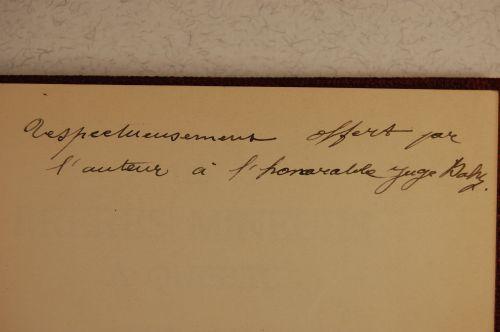 Respectueusement offert par
l'auteur à l'honorable Juge Baby.